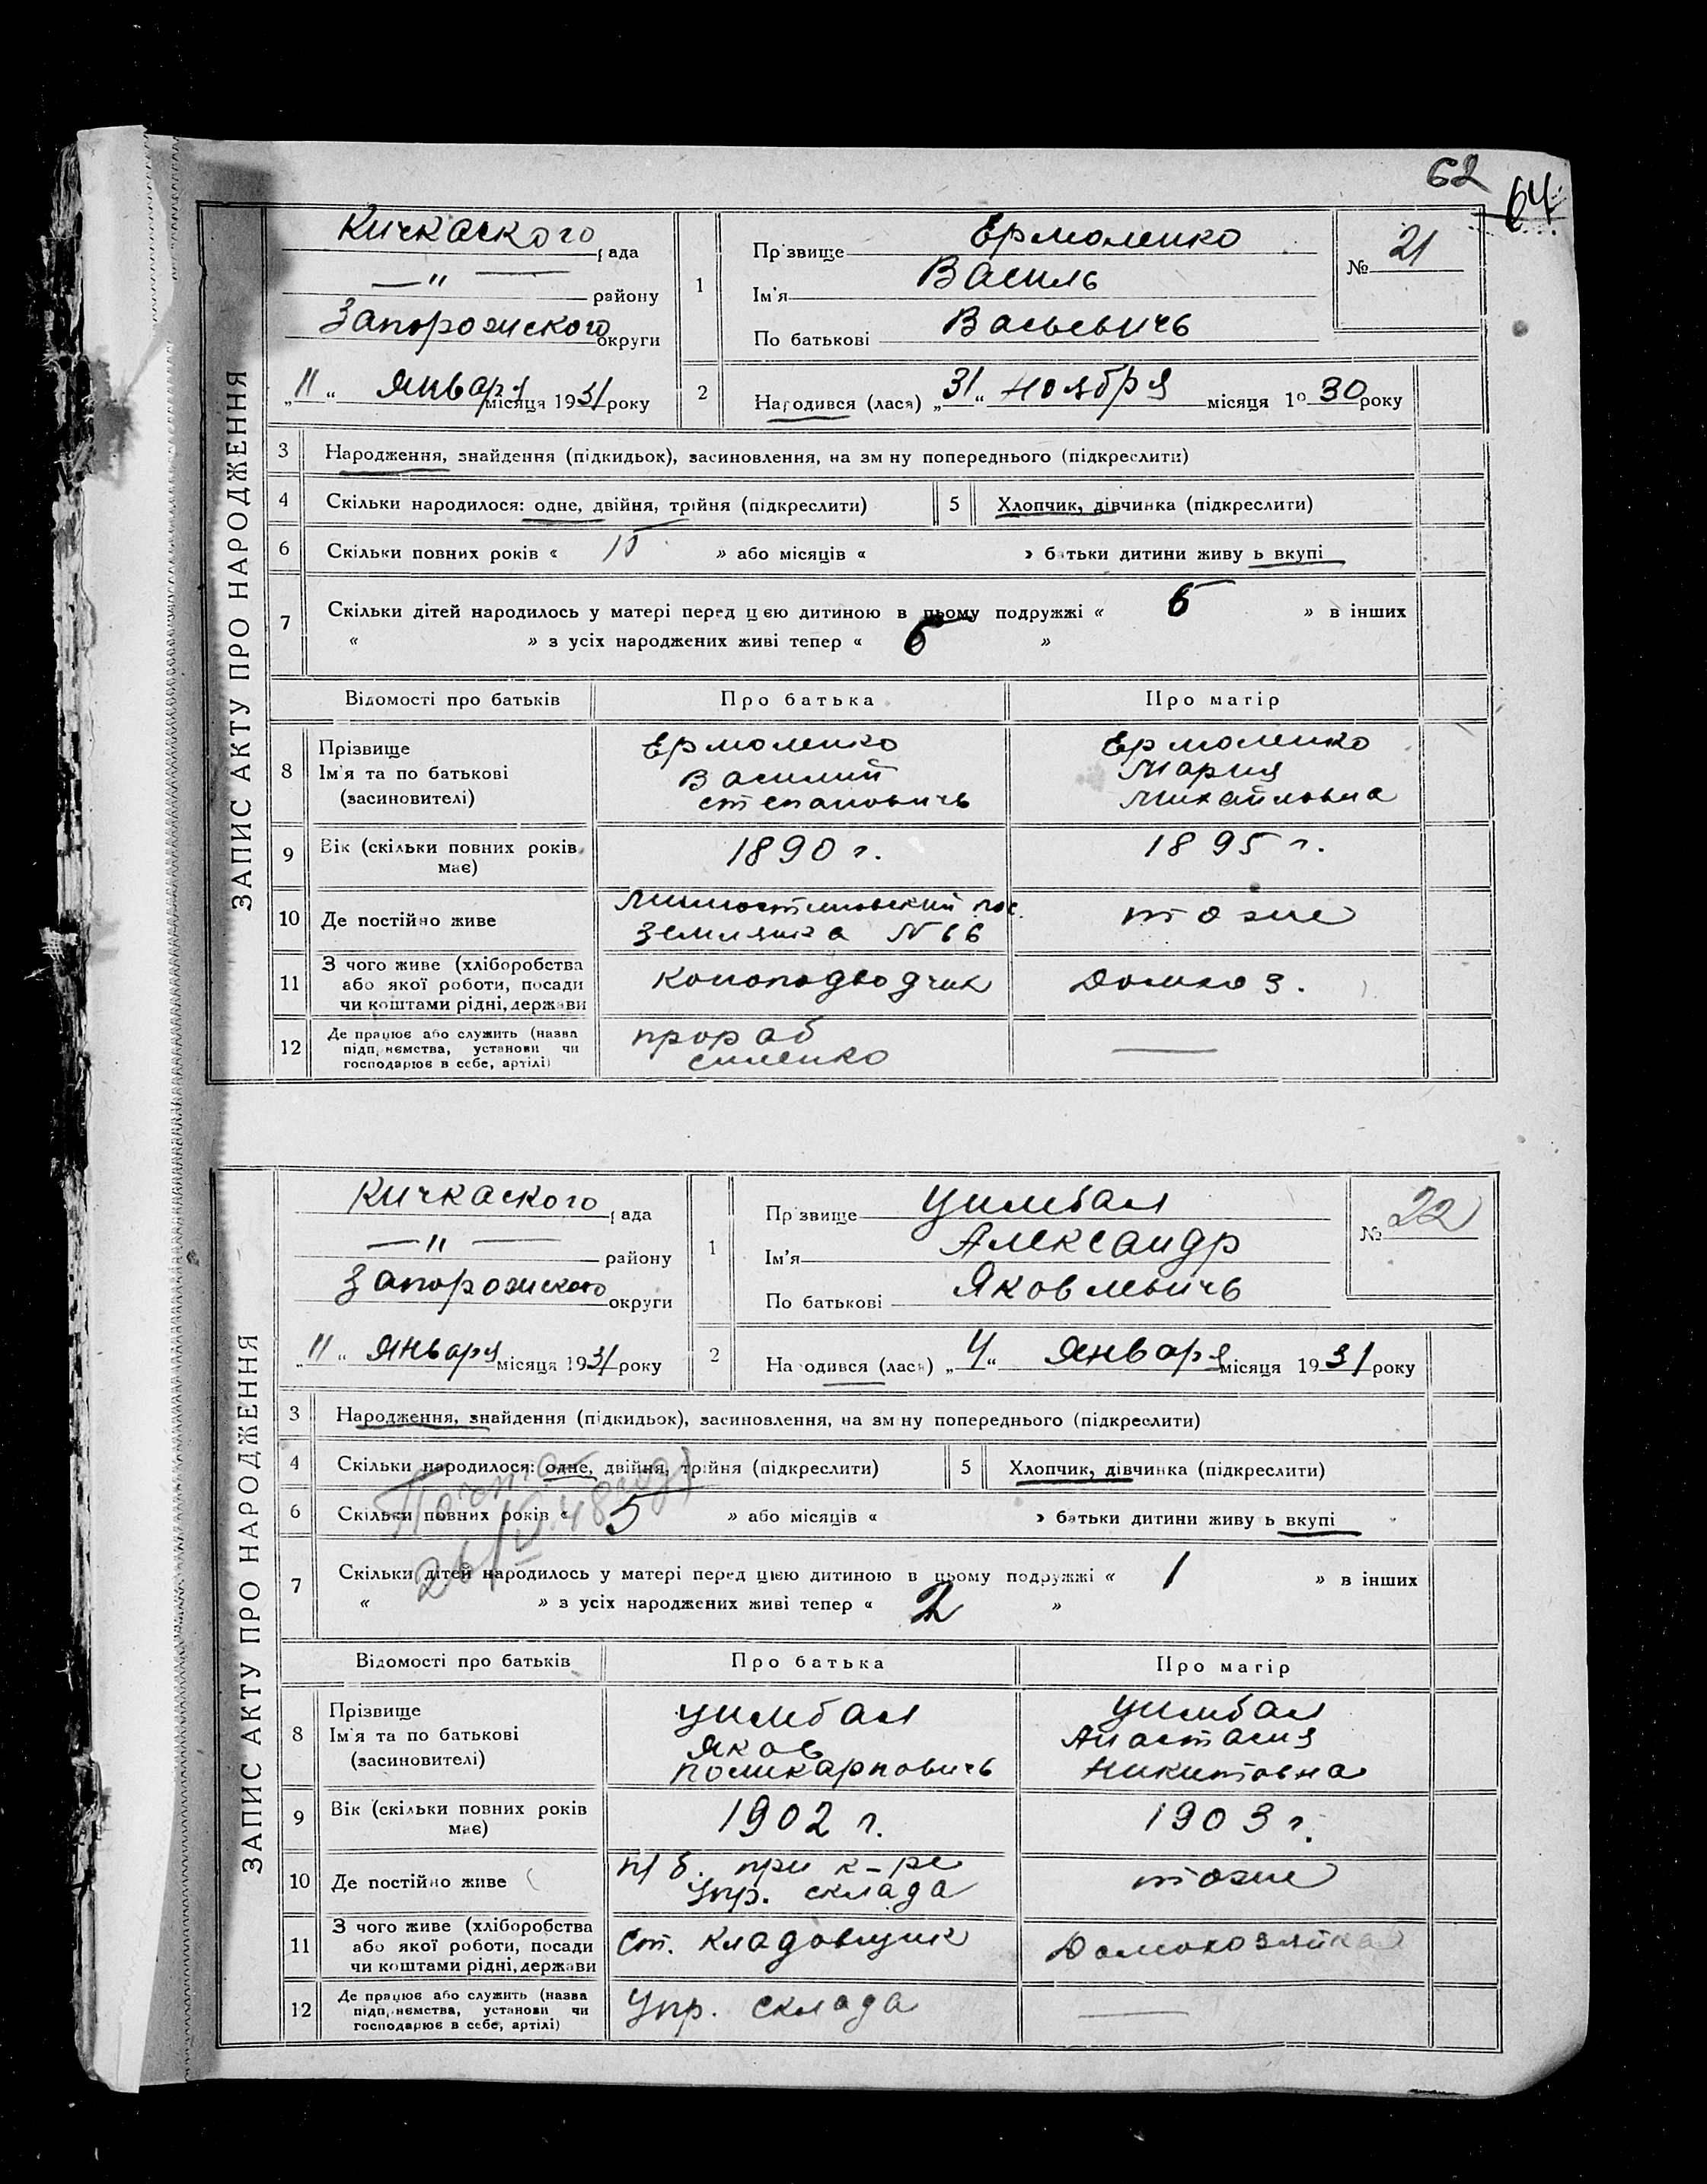 62
64
ЗАПИС АКТУ ПРО НАРОДЖЕННЯ
Кичкаского рада
— " — району
Запорожского округи
„11“ Января місяця 1931 року
1 Прізвище Ермоленко
Ім'я Василь
По батькові Васьевичь
№ 21
2 Народився (лася) „31“ ноября місяця 1930 року
3 Народження, знайдення (підкидьок), засиновлення, на зміну попереднього (підкреслити)
4 Скільки народилося: одне, двійня, трійня (підкреслити) 5 Хлопчик, дівчинка (підкреслити)
6 Скільки повних років « 15 » або місяців « » батьки дитини живуть вкупі
7 Скільки дітей народилось у матері перед цією дитиною в цьому подружжі « 6 » в інших
« » з усіх народжених живі тепер « 6 »
Відомості про батьків Про батька Про матір
8 Прізвище Ім'я та по батькові (засиновителі)
Ермоленко Василий степановичь
Ермоленко Мария Михайловна
9 Вік (скільки повних років має) 1890 г. 1895 г.
10 Де постійно живе
пос. Землянка N 66
тоже
11 З чого живе (хліборобства або якої роботи, посади чи коштами рідні, держави
Коноподводчик Домохоз.
12 Де працює або служить (назва підприємства, установи чи господарює в себе, артілі)
прораб силенко —
ЗАПИС АКТУ ПРО НАРОДЖЕННЯ
Кичкаского рада
— " — району
Запорожского округи
„11“ Января місяця 1931 року
1 Прізвище Цимбал
Ім'я Александр
По батькові Яковлевичь
№ 22
2 Народився (лася) „4“ Января місяця 1931 року
3 Народження, знайдення (підкидьок), засиновлення, на зміну попереднього (підкреслити)
4 Скільки народилося: одне, двійня, трійня (підкреслити) 5 Хлопчик, дівчинка (підкреслити)
6 Скільки повних років « 5 » або місяців « » батьки дитини живуть вкупі
26/V.48 год
7 Скільки дітей народилось у матері перед цією дитиною в цьому подружжі « 1 » в інших
« » з усіх народжених живі тепер « 2 »
Відомості про батьків Про батька Про матір
8 Прізвище Ім'я та по батькові (засиновителі)
Цимбал Яков Поликарповичь
Цимбал Анастасия Никитовна
9 Вік (скільки повних років має) 1902 г. 1903 г.
10 Де постійно живе
п/б. при к-ре Упр. склада
тоже
11 З чого живе (хліборобства або якої роботи, посади чи коштами рідні, держави
Ст. кладовщик Домохозяйка
12 Де працює або служить (назва підприємства, установи чи господарює в себе, артілі)
Упр. склада —